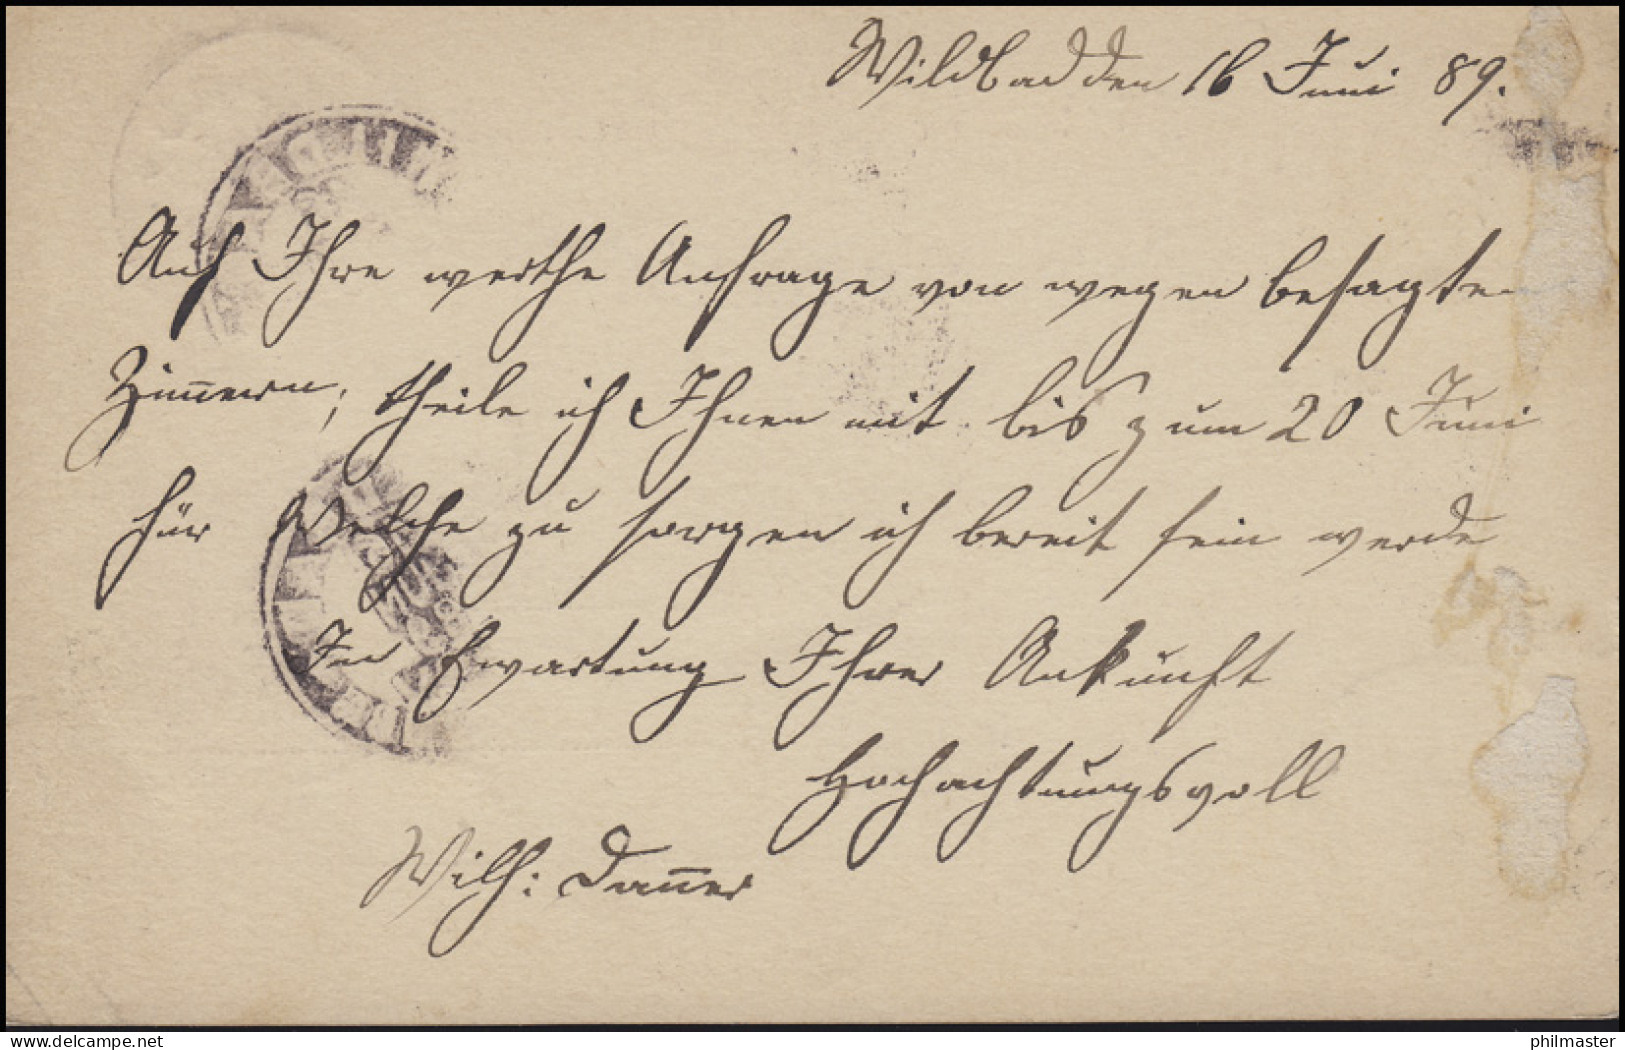 Wildbad den 16 Juni 89.
Auf Ihre werthe Anfrage von wegen besagten
Zimmern; theile ich Ihnen mit bis zum 20 Juni
für Welche zu sorgen ich bereit sein werde
In Erwartung Ihrer Ankunft
Hochachtungsvoll
Wilh: Danner
delcampe.net
philmaster